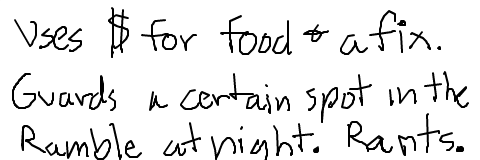 Uses $ for food & a fix.
Guards a certain spot in the
Ramble at night. Rants.